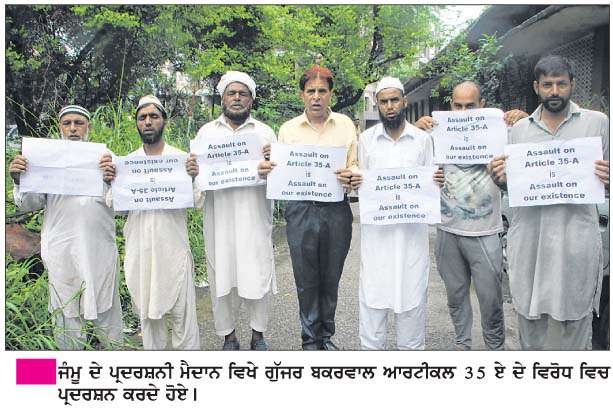 Assault on
Article 35-A
is
Assault on
Assault on
Article 35-A
is
Assault on
our existence
Assault on
Article 35-A
is
Assault on
our existence
Assault on
Article 35-A
is
Assault on
our existence
Assault on
Article 35-A
is
Assault on
our existence
Assault on
Article 35-A
is
Assault on
our existence
ਜੰਮੂ ਦੇ ਪ੍ਰਦਰਸ਼ਨੀ ਮੈਦਾਨ ਵਿਖੇ ਗੁੱਜਰ ਬਕਰਵਾਲ ਆਰਟੀਕਲ 35 ਏ ਦੇ ਵਿਰੋਧ ਵਿਚ
ਪ੍ਰਦਰਸ਼ਨ ਕਰਦੇ ਹੋਏ।